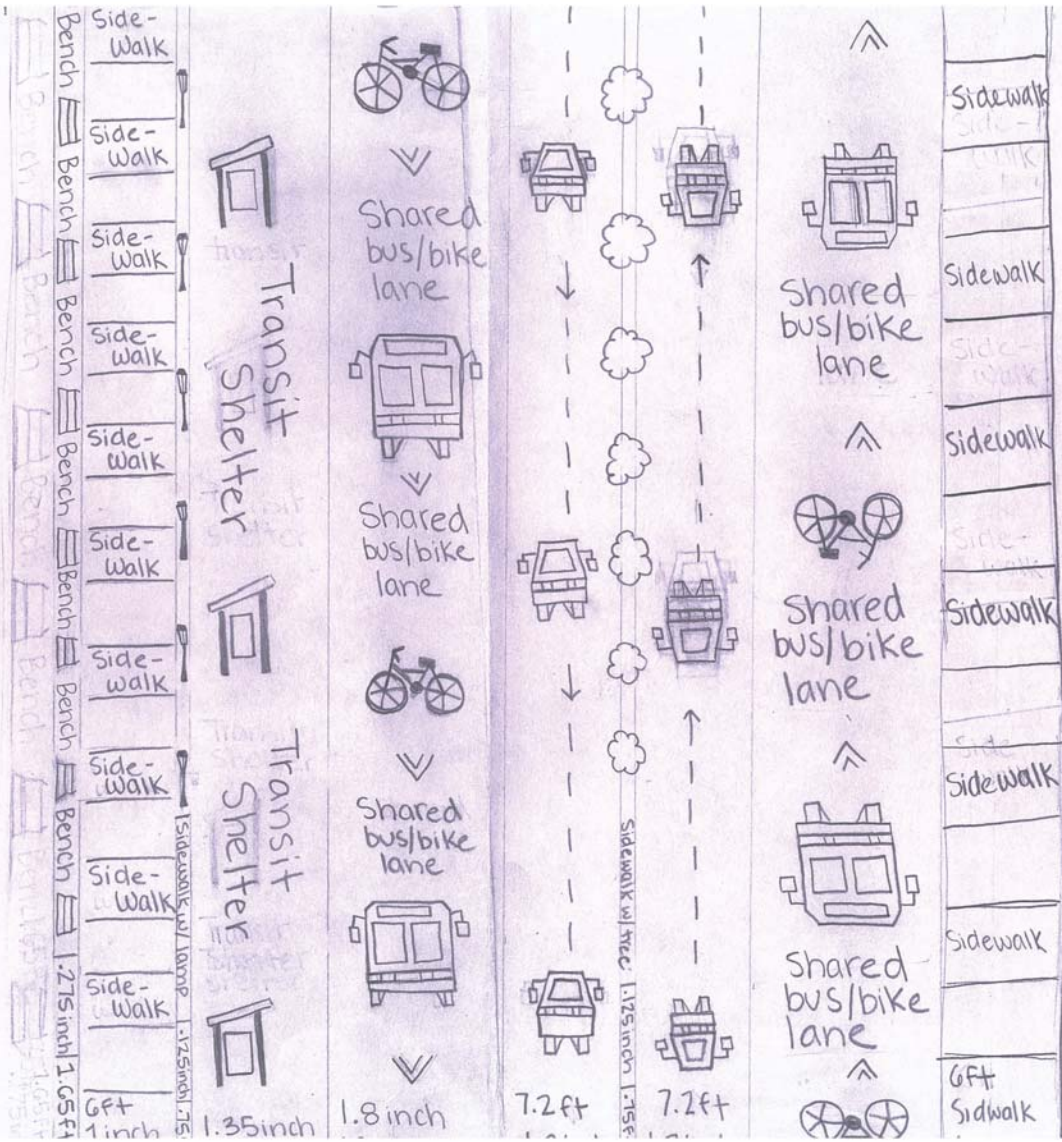 Bench
Bench
Bench
Bench
Bench
Bench
Bench
.275inch | 1.65ft
Side-
walk
Side-
walk
Side-
walk
Side-
walk
Side-
walk
Side-
walk
Side-
walk
Side-
walk
Side-
walk
Side-
walk
6ft
1 inch
Sidewalk w/ lamp | .125inch | .75
Transit
Shelter
Transit
Shelter
1.35inch
Shared
bus/bike
lane
Shared
bus/bike
lane
Shared
bus/bike
lane
1.8 inch
7.2ft
Sidewalk w/ tree | .125 inch | .75f
7.2ft
Shared
bus/bike
lane
Shared
bus/bike
lane
Shared
bus/bike
lane
Sidewalk
Sidewalk
Sidewalk
Sidewalk
Sidewalk
Sidewalk
6ft
Sidwalk